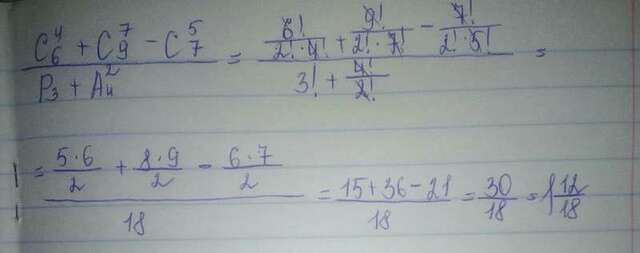 (C_6^4 + C_9^7 - C_7^5)/(P_3 + A_4^2) = (6!/(2!·4!) + 9!/(2!·7!) - 7!/(2!·5!))/(3! + 4!/2!) =
= (5·6/2 + 8·9/2 - 6·7/2)/18 = (15+36-21)/18 = 30/18 = 1 12/18